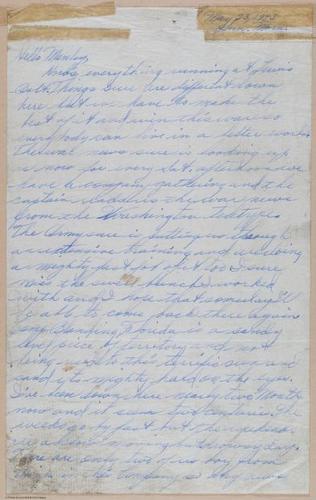 May 23, 1943
Hello Manley,
Hows everything running at Twin
Salt. Things sure are different down
here but we have to make the
best of it and win this war so
everybody can live in a better world.
The war news sure is looking up
is now for every Sat. afternoon we
have a company gathering and the
captain reads us the war news
from the Washington
The Army sure is putting us through
an extensive training and we doing
a mighty fast job of it too I sure
miss the swell bunch I worked
with and I hope that someday I'll
be able to come back there again
Florida is a sandy
level piece of territory and not
being used to this terrific sun and
sand its mighty hard on the eyes.
Ive been down here nearly two months
now and it seems like The
weeks go by fast but the
day.
There are only two of us boy from
in this company so